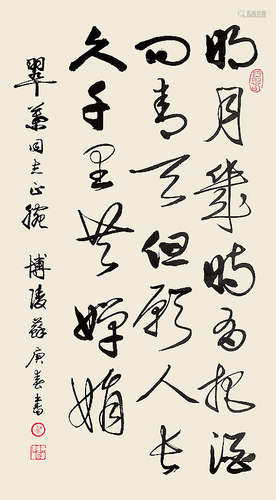 明月几时有把酒
问青天但愿人长
久千里共婵娟
翠英同志正腕 博陵苏庚春书